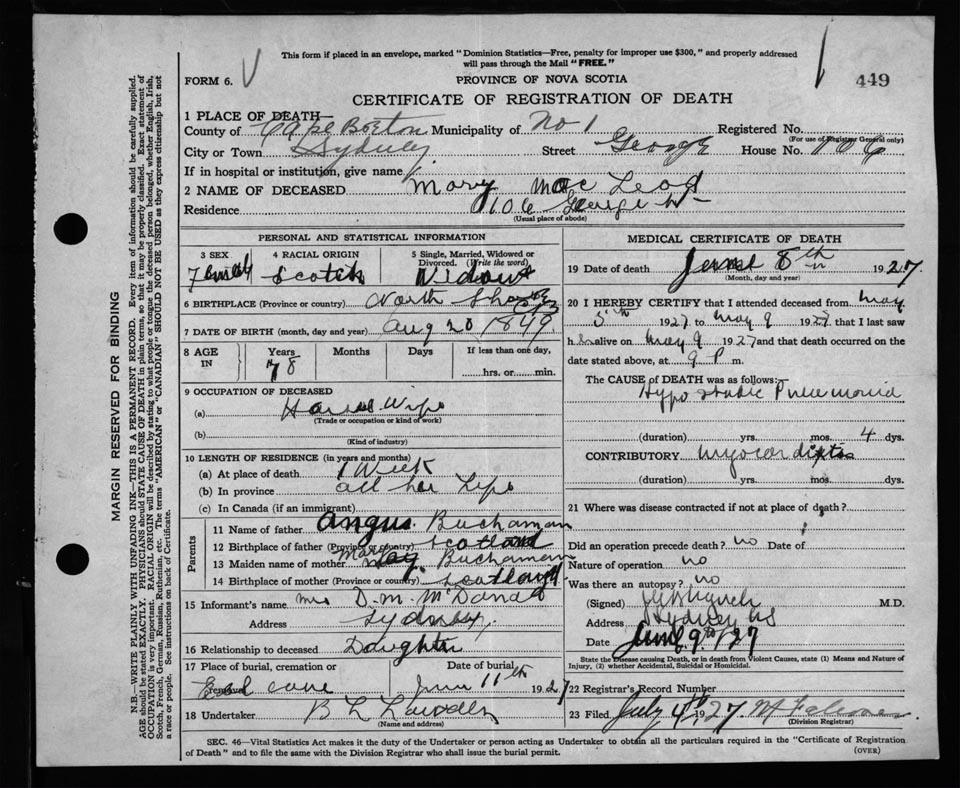 This form if placed in an envelope, marked "Dominion Statistics—Free, penalty for improper use $300," and properly addressed
will pass through the Mail "FREE."
FORM 6.
PROVINCE OF NOVA SCOTIA
449
CERTIFICATE OF REGISTRATION OF DEATH
1 PLACE OF DEATH
County of Cape Breton Municipality of No 1 Registered No.
(For use of Registrar General only)
City or Town Sydney Street George House No. 106
If in hospital or institution, give name
2 NAME OF DECEASED Mary Mac Leod
Residence 106 George St
(Usual place of abode)
PERSONAL AND STATISTICAL INFORMATION
3 SEX 4 RACIAL ORIGIN 5 Single, Married, Widowed or
Divorced. (Write the word)
Female Scotch Widow
6 BIRTHPLACE (Province or country) North Shore CB
7 DATE OF BIRTH (month, day and year) Aug 20 1849
8 AGE IN Years Months Days If less than one day,
78 hrs. or min.
9 OCCUPATION OF DECEASED
(a) House Wife
(Trade or occupation or kind of work)
(b)
(Kind of industry)
10 LENGTH OF RESIDENCE (in years and months)
(a) At place of death 1 Week
(b) In province all her Life
(c) In Canada (if an immigrant)
Parents
11 Name of father Angus Buchanan
12 Birthplace of father (Province or country) Scotland
13 Maiden name of mother Mary Buchanan
14 Birthplace of mother (Province or country) Scotland
15 Informant's name Mrs D. M. McDonald
Address Sydney
16 Relationship to deceased Daughter
17 Place of burial, cremation or removal Date of burial
June 11th 1927
18 Undertaker B L
(Name and address)
MEDICAL CERTIFICATE OF DEATH
19 Date of death June 8th 1927
(Month, day and year)
20 I HEREBY CERTIFY that I attended deceased from May
5th 1927 to May 9 1927 that I last saw
her alive on May 9 1927 and that death occurred on
date stated above, at 9 P. m.
The CAUSE of DEATH was as follows:
Hypostatic Pneumonia
(duration) yrs. mos. 4 dys.
CONTRIBUTORY Myocarditis
(duration) yrs. mos. dys.
21 Where was disease contracted if not at place of death?
Did an operation precede death? no Date of
Nature of operation no
Was there an autopsy? no
(Signed) M.D.
Address Sydney NS
Date June 9th/27
State the Disease causing Death, or in death from Violent Causes, state (1) Means and Nature of
Injury, (2) whether Accidental, Suicidal or Homicidal.
22 Registrar's Record Number
23 Filed July 4th 1927
(Division Registrar)
SEC. 46—Vital Statistics Act makes it the duty of the Undertaker or person acting as Undertaker to obtain all the particulars required in the "Certificate of Registration
of Death" and to file the same with the Division Registrar who shall issue the burial permit.
(OVER)
MARGIN RESERVED FOR BINDING
N.B.—WRITE PLAINLY WITH UNFADING INK—THIS IS A PERMANENT RECORD. Every item of information should be carefully supplied.
AGE should be stated EXACTLY. PHYSICIANS should STATE CAUSE OF DEATH in plain terms, so that it may be properly classified. Exact statement of
OCCUPATION is very important. RACIAL ORIGIN will be described by stating to what people or tongue the deceased person belonged, whether English, Irish,
Scotch, French, German, Russian, Ruthenian, etc. The terms "AMERICAN" or "CANADIAN" SHOULD NOT BE USED as they express citizenship but not
a race or people. See instructions on back of Certificate.